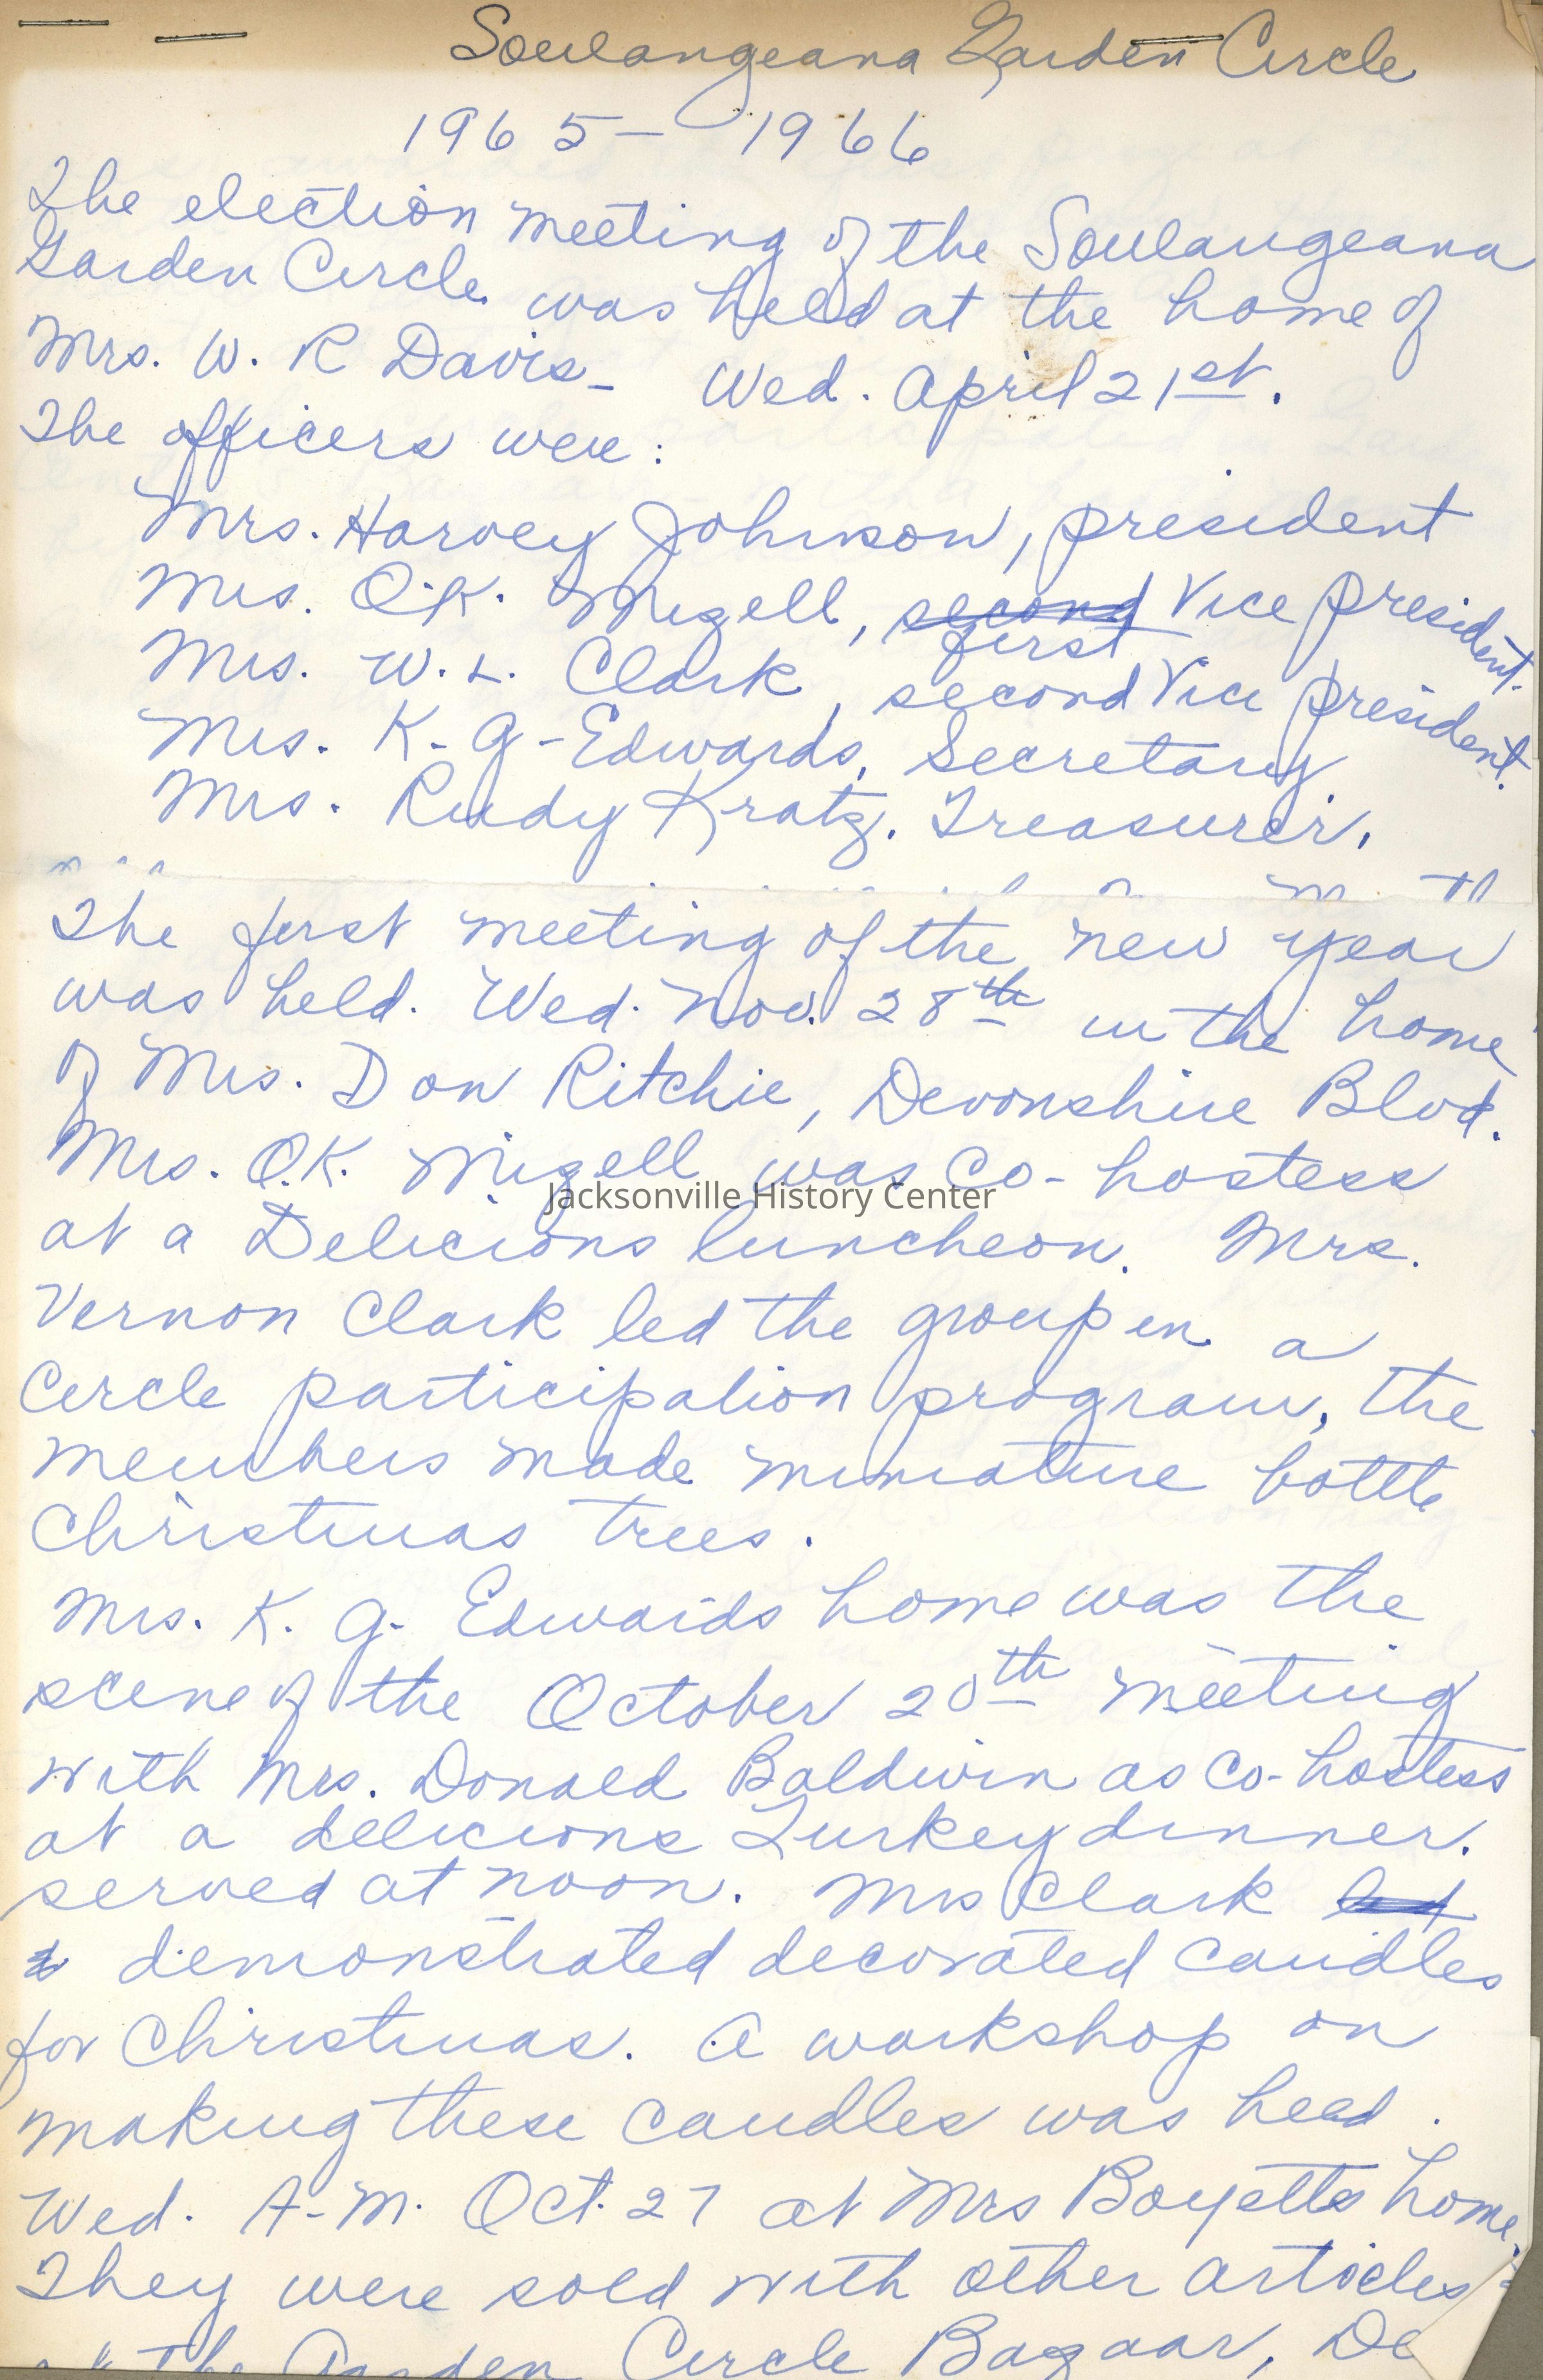 Soulangeana Garden Circle
1965 - 1966
The election meeting of the Soulangeana
Garden Circle was held at the home of
Mrs. W. R Davis - Wed. April 21st.
The officers were:
Mrs. Harvey Johnson, president
Mrs. O.K. Mizell, second first Vice president.
Mrs. W. L. Clark, second Vice president.
Mrs. K. G - Edwards, Secretary
Mrs. Rudy Kratz. Treasurer.
The first meeting of the new year
was held. Wed. Nov. 28th in the home
of Mrs. Don Ritchie, Devonshire Blvd.
Mrs. O.K. Mizell was Co-hostess
Jacksonville History Center
at a Delicious luncheon. Mrs.
Vernon Clark led the group in a
Circle participation program, the
members made miniature bottle
Christmas trees.
Mrs. K. G. Edwards home was the
scene of the October 20th meeting
with Mrs. Donald Baldwin as Co-hostess
at a delicious Turkey dinner.
served at noon. Mrs Clark led
demonstrated decorated candles
for Christmas. A workshop on
making these candles was held.
Wed. A.M. Oct. 27 at Mrs Boyetts home.
They were sold with other articles
at the Garden Circle Bazaar, De